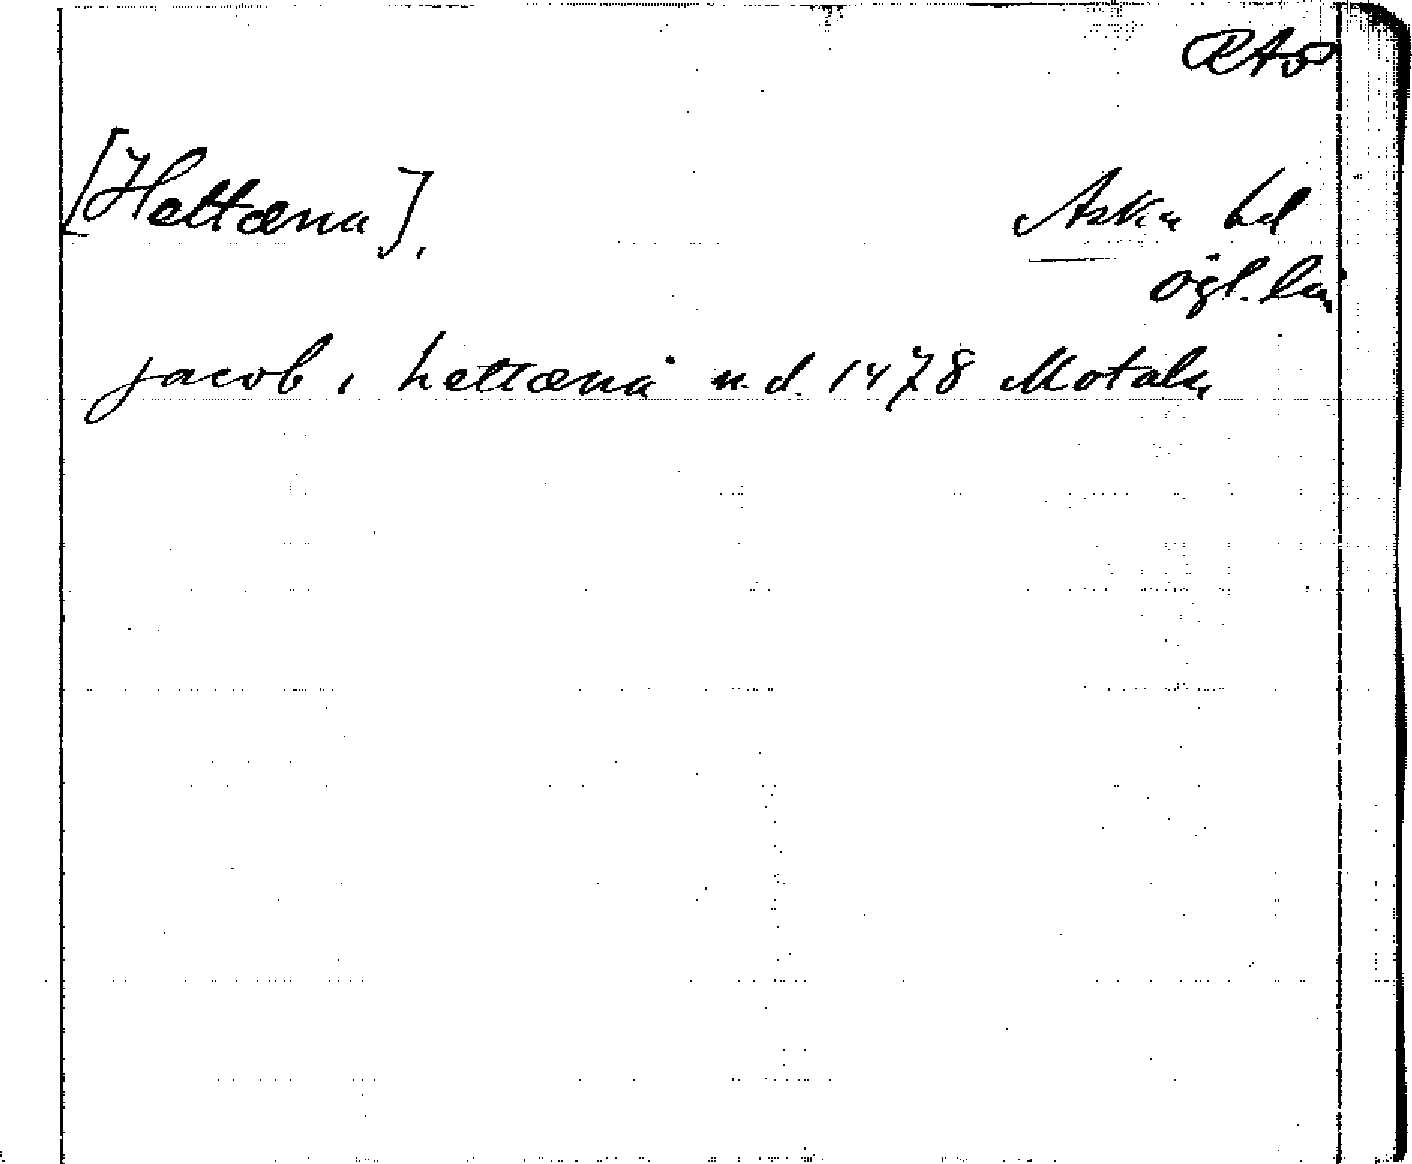 RAö
[Hettæna],
Aska hd
ögl. län
jacob i hettæna n.d. 1478 Motala